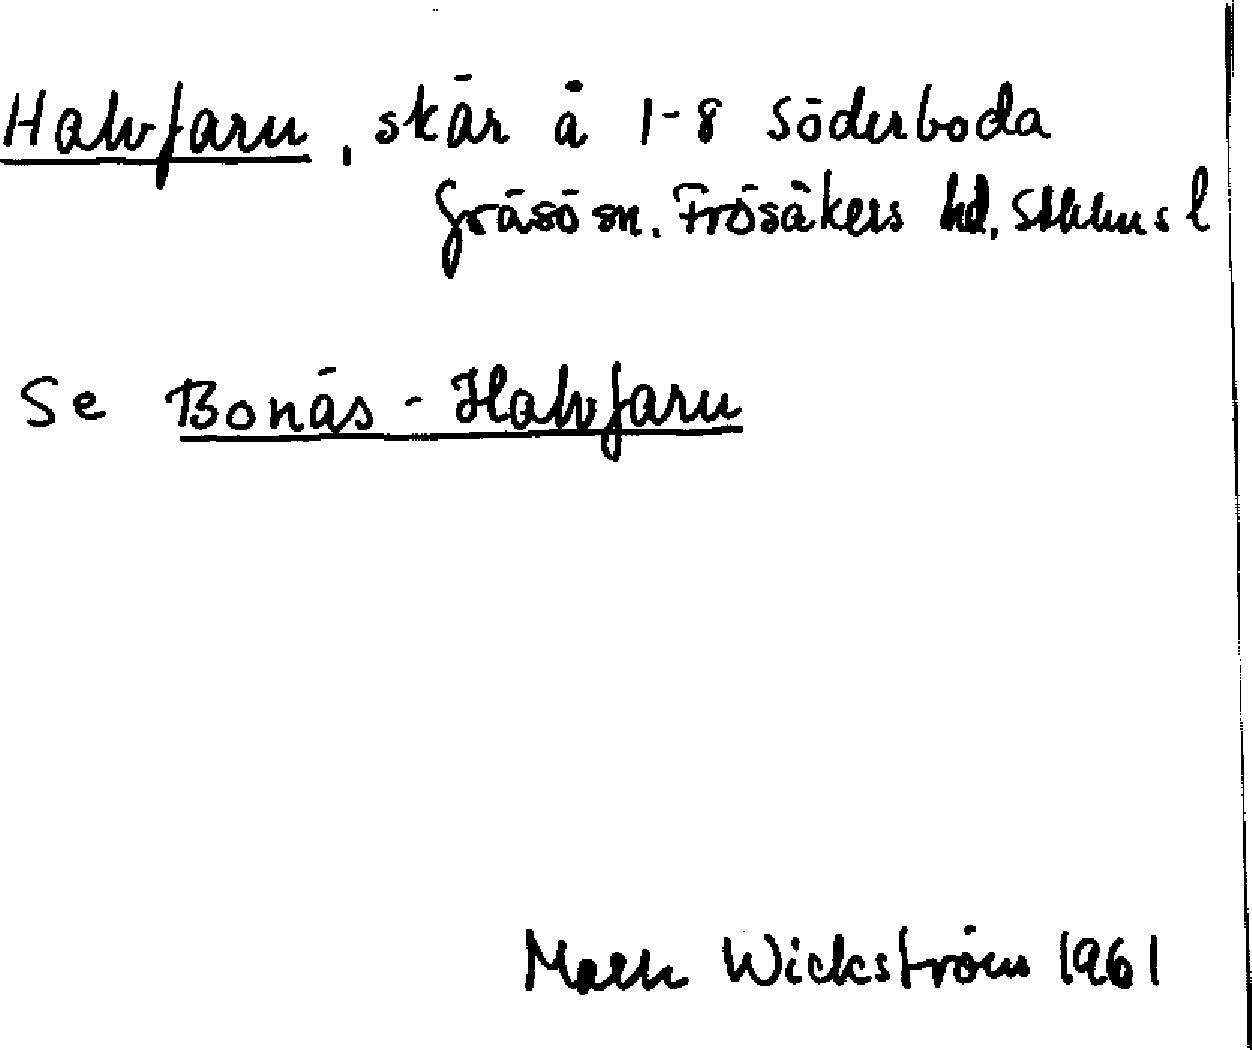 Halvfaru, skär å 1-8 Söderboda
Gräsö sn. Frösåkers hd, Sthlms l
Se Bonäs-Halvfaru
Wickström 1961